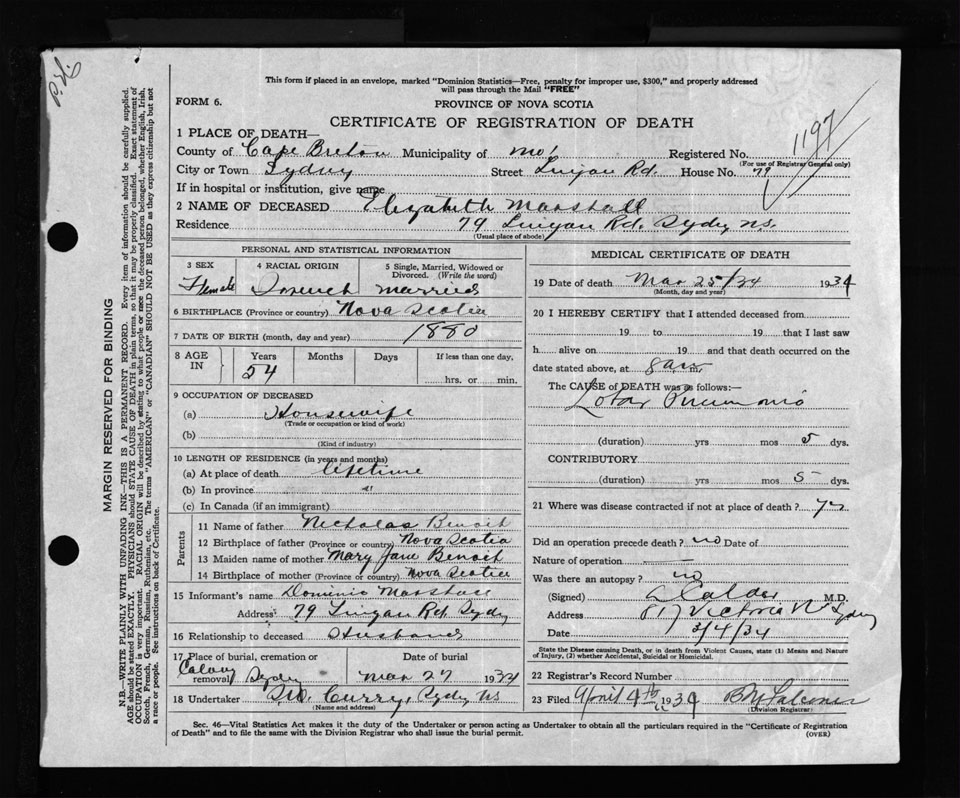 This form if placed in an envelope, marked "Dominion Statistics—Free, penalty for improper use, $300," and properly addressed
will pass through the Mail "FREE"
FORM 6. PROVINCE OF NOVA SCOTIA
CERTIFICATE OF REGISTRATION OF DEATH
1197
1 PLACE OF DEATH—
County of Cape Breton Municipality of Registered No.
(For use of Registrar General only)
City or Town Sydney Street Lingan Rd. House No. 79
If in hospital or institution, give name
2 NAME OF DECEASED Elizabeth Marshall
Residence 79 Lingan Rd. Sydney N.S.
(Usual place of abode)
PERSONAL AND STATISTICAL INFORMATION
3 SEX 4 RACIAL ORIGIN 5 Single, Married, Widowed or Divorced. (Write the word)
Female French married
6 BIRTHPLACE (Province or country) Nova Scotia
7 DATE OF BIRTH (month, day and year) 1880
8 AGE IN Years Months Days If less than one day,
54 hrs. or min.
9 OCCUPATION OF DECEASED
(a) Housewife
(Trade or occupation or kind of work)
(b)
(Kind of industry)
10 LENGTH OF RESIDENCE (in years and months)
(a) At place of death lifetime
(b) In province "
(c) In Canada (if an immigrant)
Parents
11 Name of father Nicholas Benoit
12 Birthplace of father (Province or country) Nova Scotia
13 Maiden name of mother Mary Jane Benoit
14 Birthplace of mother (Province or country) Nova Scotia
15 Informant's name Dominic Marshall
Address 79 Lingan Rd. Sydney
16 Relationship to deceased Husband
17 Place of burial, cremation or removal Date of burial
Calvary Sydney Mar 27 1934
18 Undertaker Curry, Sydney NS
(Name and address)
MEDICAL CERTIFICATE OF DEATH
19 Date of death Mar 25/34 1934
(Month, day and year)
20 I HEREBY CERTIFY that I attended deceased from
19 to 19 that I last saw
h alive on 19 and that death occurred on the
date stated above, at 8 a.m.
The CAUSE of DEATH was as follows:—
Lobar Pneumonia
(duration) yrs mos 5 dys.
CONTRIBUTORY
(duration) yrs mos 5 dys.
21 Where was disease contracted if not at place of death?
Did an operation precede death? no Date of
Nature of operation —
Was there an autopsy? no
(Signed) Calder M.D.
Address 817 Victoria Rd Sydney
Date 3/4/34
State the Disease causing Death, or in death from Violent Causes, state (1) Means and Nature
of Injury, (2) whether Accidental, Suicidal or Homicidal.
22 Registrar's Record Number
23 Filed April 4th 1934
(Division Registrar)
Sec. 46—Vital Statistics Act makes it the duty of the Undertaker or person acting as Undertaker to obtain all the particulars required in the "Certificate of Registration
of Death" and to file the same with the Division Registrar who shall issue the burial permit. (OVER)
MARGIN RESERVED FOR BINDING
N.B.—WRITE PLAINLY WITH UNFADING INK—THIS IS A PERMANENT RECORD. Every item of information should be carefully supplied.
AGE should be stated EXACTLY. PHYSICIANS should STATE CAUSE OF DEATH in plain terms, so that it may be properly classified. Exact statement of
OCCUPATION is very important. RACIAL ORIGIN will be described by stating to what people or race the deceased person belonged, whether English, Irish,
Scotch, French, German, Russian, Ruthenian, etc. The terms "AMERICAN" or "CANADIAN" SHOULD NOT BE USED as they express citizenship but not
a race or people. See instructions on back of Certificate.